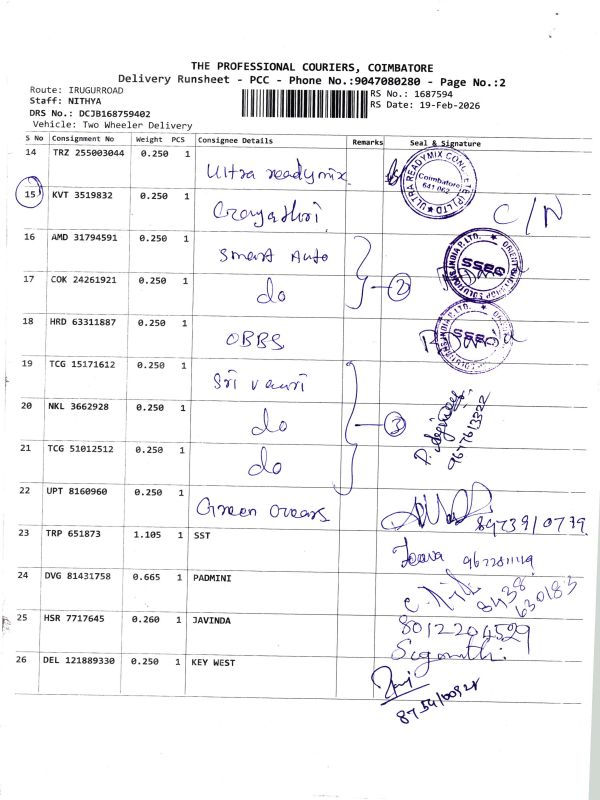 THE PROFESSIONAL COURIERS, COIMBATORE
Delivery Runsheet - PCC - Phone No.:9047080280 - Page No.:2
Route: IRUGURROAD
Staff: NITHYA
DRS No.: DCJB168759402
Vehicle: Two Wheeler Delivery
RS No.: 1687594
RS Date: 19-Feb-2026
S No Consignment No Weight PCS Consignee Details Remarks Seal & Signature
14 TRZ 255003044 0.250 1 Ultra readymix
ULTRA READYMIX CONCRETE (P) LTD
Coimbatore
641 062
15 KVT 3519832 0.250 1 Gayathri C/N
16 AMD 31794591 0.250 1 Smart Auto
17 COK 24261921 0.250 1 do 2
SSEQ
18 HRD 63311887 0.250 1 OBBS
19 TCG 15171612 0.250 1 Sri vauri
20 NKL 3662928 0.250 1 do 3
9677613322
21 TCG 51012512 0.250 1 do
22 UPT 8160960 0.250 1 Green 8973910779
23 TRP 651873 1.105 1 SST
24 DVG 81431758 0.665 1 PADMINI 8438 630183
25 HSR 7717645 0.260 1 JAVINDA 8012204529
26 DEL 121889330 0.250 1 KEY WEST